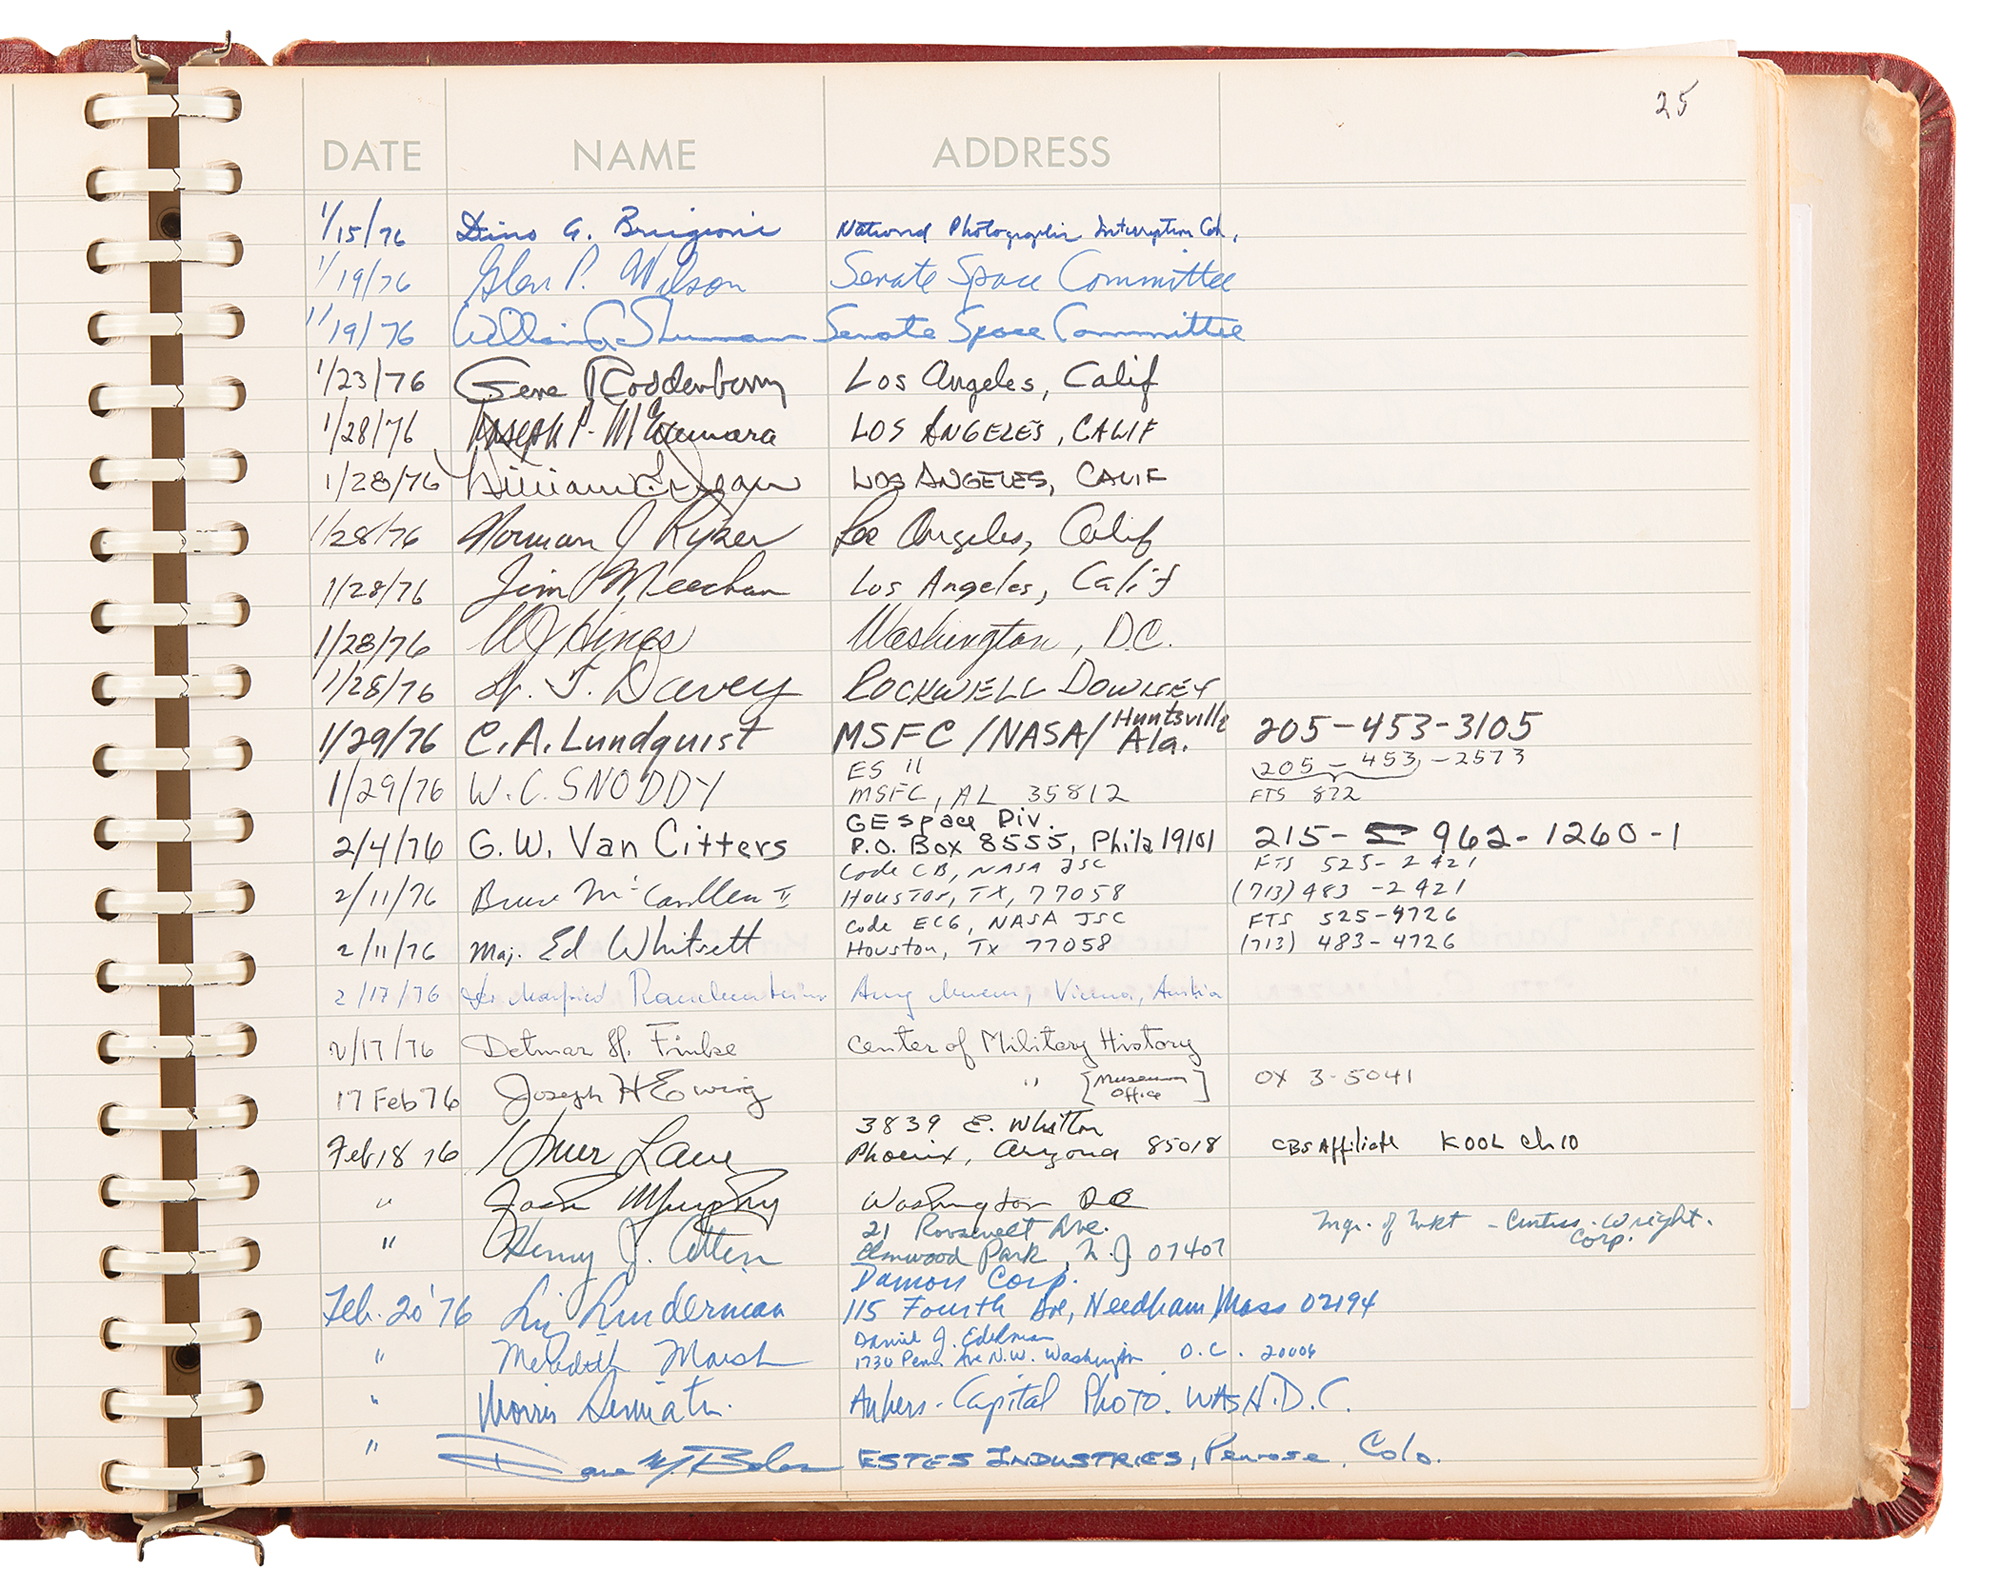 25
DATE NAME ADDRESS
1/15/76 Dino A. Brugioni National Photographic Cen.
1/19/76 Glen P. Wilson Senate Space Committee
1/19/76 William Shuman Senate Space Committee
1/23/76 Gene Roddenberry Los Angeles, Calif
1/28/76 Joseph P. McNamara LOS ANGELES, CALIF
1/28/76 William LOS ANGELES, CALIF
1/28/76 Norman J Ryker Los Angeles, Calif
1/28/76 Jim Meechan Los Angeles, Calif
1/28/76 WJ Hines Washington, D.C.
1/28/76 J. Davey ROCKWELL DOWNEY
1/29/76 C.A. Lundquist MSFC/NASA/Huntsville Ala. 205-453-3105
ES 11 205-453-2573
1/29/76 W.C. SNODDY MSFC, AL 35812 FTS 872
GE Space Div.
2/4/76 G.W. Van Citters P.O. Box 8555, Phila 19101 215-962-1260-1
Code CB, NASA JSC FTS 525-2421
2/11/76 Bruce McCandless II Houston, TX, 77058 (713) 483-2421
Code EC6, NASA JSC FTS 525-4726
2/11/76 Maj. Ed Whitsett Houston, Tx 77058 (713) 483-4726
2/17/76 Dr Manfried Rauchensteiner Army Museum, Vienna, Austria
2/17/76 Detmar H. Finke Center of Military History
17 Feb 76 Joseph H Ewing " [Museum Office] OX 3-5041
3839 E. Whitton
Feb 18 76 Homer Lane Phoenix, Aryzona 85018 CBS Affiliate KOOL Ch 10
" Jack Murphy Washington DC
21 Roosevelt Ave. Mgr. of Mkt - Curtiss-Wright. Corp.
" Henry J. Elmwood Park, N.J 07407
Damon Corp.
Feb. 20 '76 Liz Linderman 115 Fourth Ave, Needham Mass 02194
Daniel J. Edelman
" Meredith Marsh 1730 Penn. Ave N.W. Washington D.C. 20006
" Morris Ankers-Capital Photo. WASH. D.C.
" ESTES INDUSTRIES, Penrose, Colo.